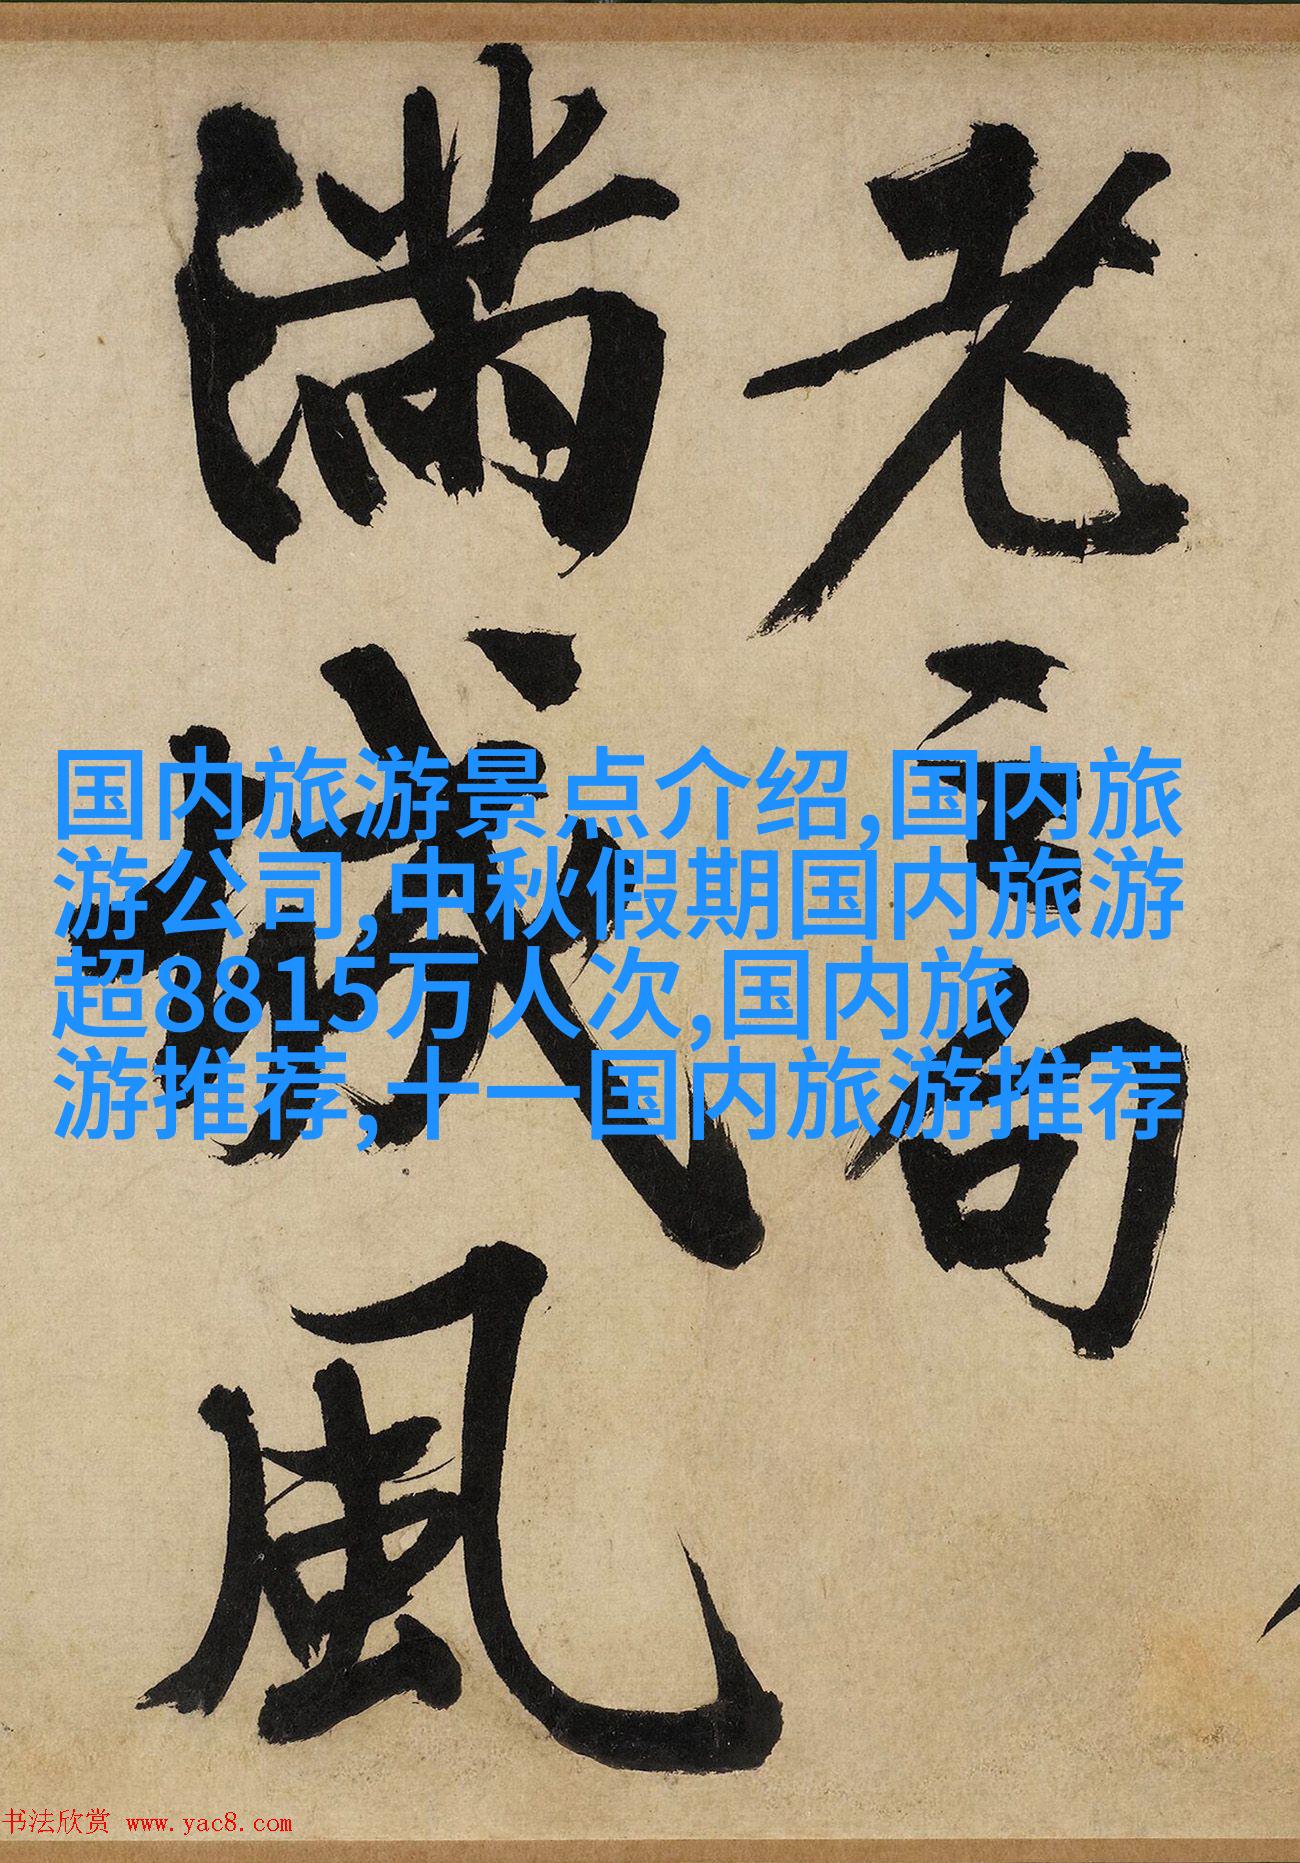 老句
滿城風
国内旅游景点介绍,国内旅
游公司,中秋假期国内旅游
超8815万人次,国内旅
游推荐,十一国内旅游推荐
书法欣赏 www.yac8.com